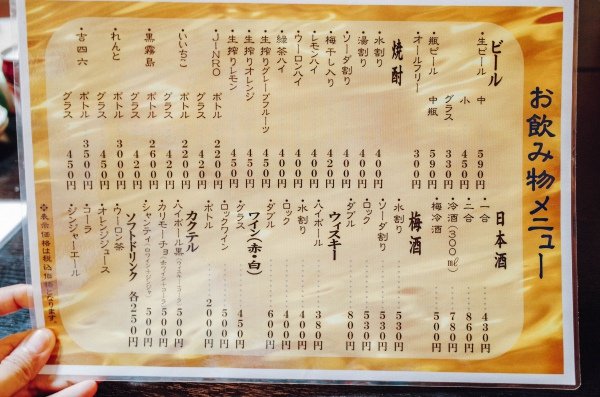 お飲み物メニュー
ビール
・生ビール 中 590円
小 450円
グラス 330円
・瓶ビール 中瓶 590円
・オールフリー 350円
焼酎
・水割り 400円
・湯割り 400円
・ソーダ割り 400円
・梅干し入り 420円
・レモンハイ 400円
・ウーロンハイ 400円
・緑茶ハイ 400円
・生搾りグレープフルーツ 450円
・生搾りオレンジ 450円
・生搾りレモン 450円
・JINRO ボトル 2200円
・いいちこ ボトル 2200円
グラス 420円
・黒霧島 ボトル 2600円
グラス 420円
・れんと ボトル 3000円
グラス 450円
・吉四六 ボトル 3500円
グラス 450円
日本酒
・一合 430円
・二合 860円
・冷酒(300㎖) 780円
・梅冷酒 500円
梅酒
・水割り 530円
・ソーダ割り 530円
・ロック 530円
・ダブル 800円
ウィスキー
・ハイボール 380円
・水割り 400円
・ロック 400円
・ダブル 600円
ワイン(赤・白)
・グラス 450円
・ロックワイン 500円
・ボトル 2000円
カクテル
・ハイボール黒(ウィスキー・コーラ) 500円
・カリモーチョ(赤ワイン+コーラ) 500円
・シャンティ(白ワイン+ジンジャ) 500円
ソフトドリンク 各250円
・ウーロン茶
・オレンジジュース
・コーラ
・ジンジャーエール
※表示価格は税込価格となります